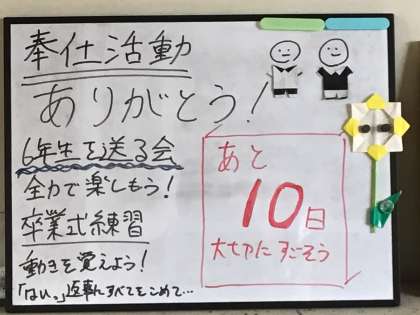 奉仕活動
ありがとう!
6年生を送る会
全力で楽しもう!
卒業式練習
動きを覚えよう!
「はい。」返事にすべてをこめて…
あと
10日
大切にすごそう